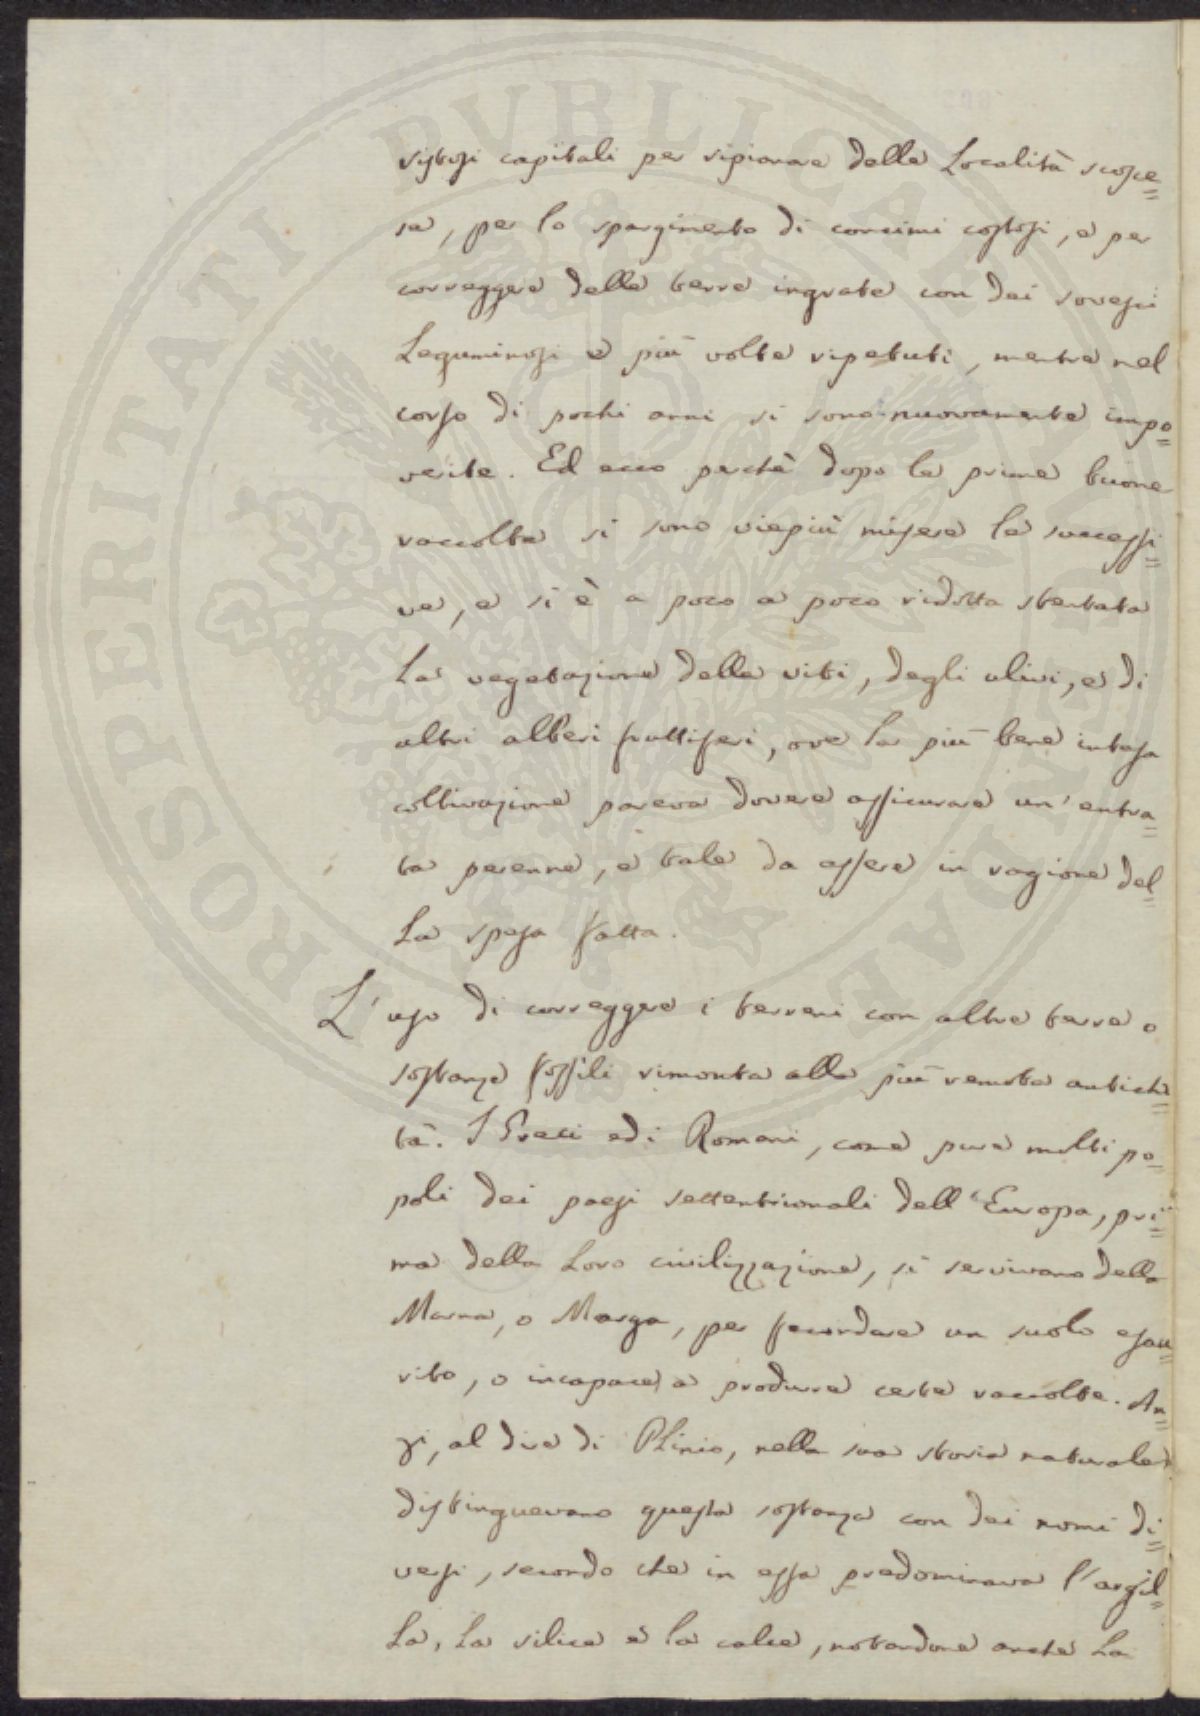 PROSPERITATI PVBLICAE AVGENDAE
vistosi capitali per ripianare delle Località scosce=
se, per lo spargimento di concimi costosi, e per
correggere delle terre ingrate con dei sovesci
Leguminosi e più volte ripetuti, mentre nel
corso di pochi anni si sono nuovamente impo=
verite. Ed ecco perchè dopo le prime buone
raccolte si sono viepiù misere le successi=
ve, e si è a poco a poco ridotta stentata
La vegetazione delle viti, degli ulivi, e di
altri alberi fruttiferi, ove la più bene intesa
coltivazione pareva dovere assicurare un'entra=
ta perenne, e tale da essere in ragione del=
La spesa fatta.
L'uso di correggere i terreni con altre terre o
sostanze fossili rimonta alla più remota antichi=
tà. I Greci ed i Romani, come pure molti po=
poli dei paesi settentrionali dell'Europa, pri=
ma della Loro civilizzazione, si servivano della
Marna, o Marga, per fecondare un suolo esau=
rito, o incapace a produrre certe raccolte. An=
zi, al dire di Plinio, nella sua storia naturale,
distinguevano questa sostanza con dei nomi di=
versi, secondo che in essa predominava l'argil=
La, La silice e la calce, notandone anche La